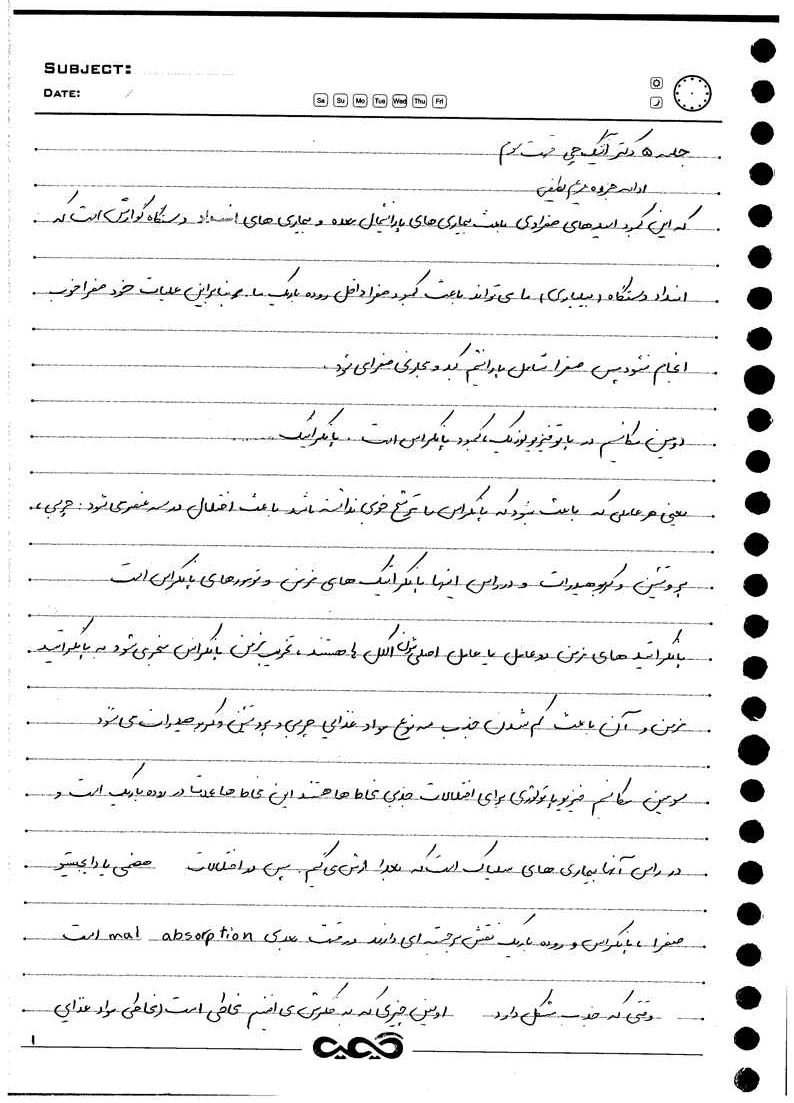 SUBJECT:
DATE: /
Sa Su Mo Tue Wed Thu Fri
جلسه ۵ دکتر آتیک چی قسمت سوم
ادامه جزوه مریم لطیفی
که این کمبود اسیدهای صفراوی باعث بیماری های پارانشیمال عمده و بیماری های انسداد دستگاه گوارش است که
انسداد دستگاه (بیلیاری) ما می تواند باعث کمبود صفرا داخل روده باریک ما و بنابراین عملیات خود صفرا خوب
انجام نشود پس صفرا شامل پارانشیم کبد و مجاری صفراوی شود.
دومین مکانیسم در پاتوفیزیولوژیک، کمبود پانکراس است. پانکراتیک
یعنی هر عاملی که باعث شود که پانکراس ما ترشح خوبی نداشته باشد باعث اختلال در سه عنصری شود: چربی،
پروتئین و کربوهیدرات و در راس اینها پانکراتیک های مزمن و تومورهای پانکراس است
پانکراتید های مزمن دو عامل یا عامل اصلی شان الکل ها هستند، تخریب مزمن پانکراس منجر می شود به پانکراتید
مزمن و آن باعث کم شدن جذب سه نوع مواد غذایی چربی و پروتئین و کربوهیدرات می شود
سومین مکانیسم فیزیوپاتولوژی برای اختلالات جذبی مخاط ها هستند این مخاط ها عمدتا در روده باریک است و
در راس آنها بیماری های سلیاک است که بعدا ارزش می گیم. پس در اختلالات هضمی یا دایجستیو
صفرا، پانکراس و روده باریک نقش برجسته ای دارند در قسمت بعدی mal absorption است
وقتی که جذب مشکل دارد اولین چیزی که به فکرش می افتیم مخاطی است (مخاطی مواد غذایی
۱